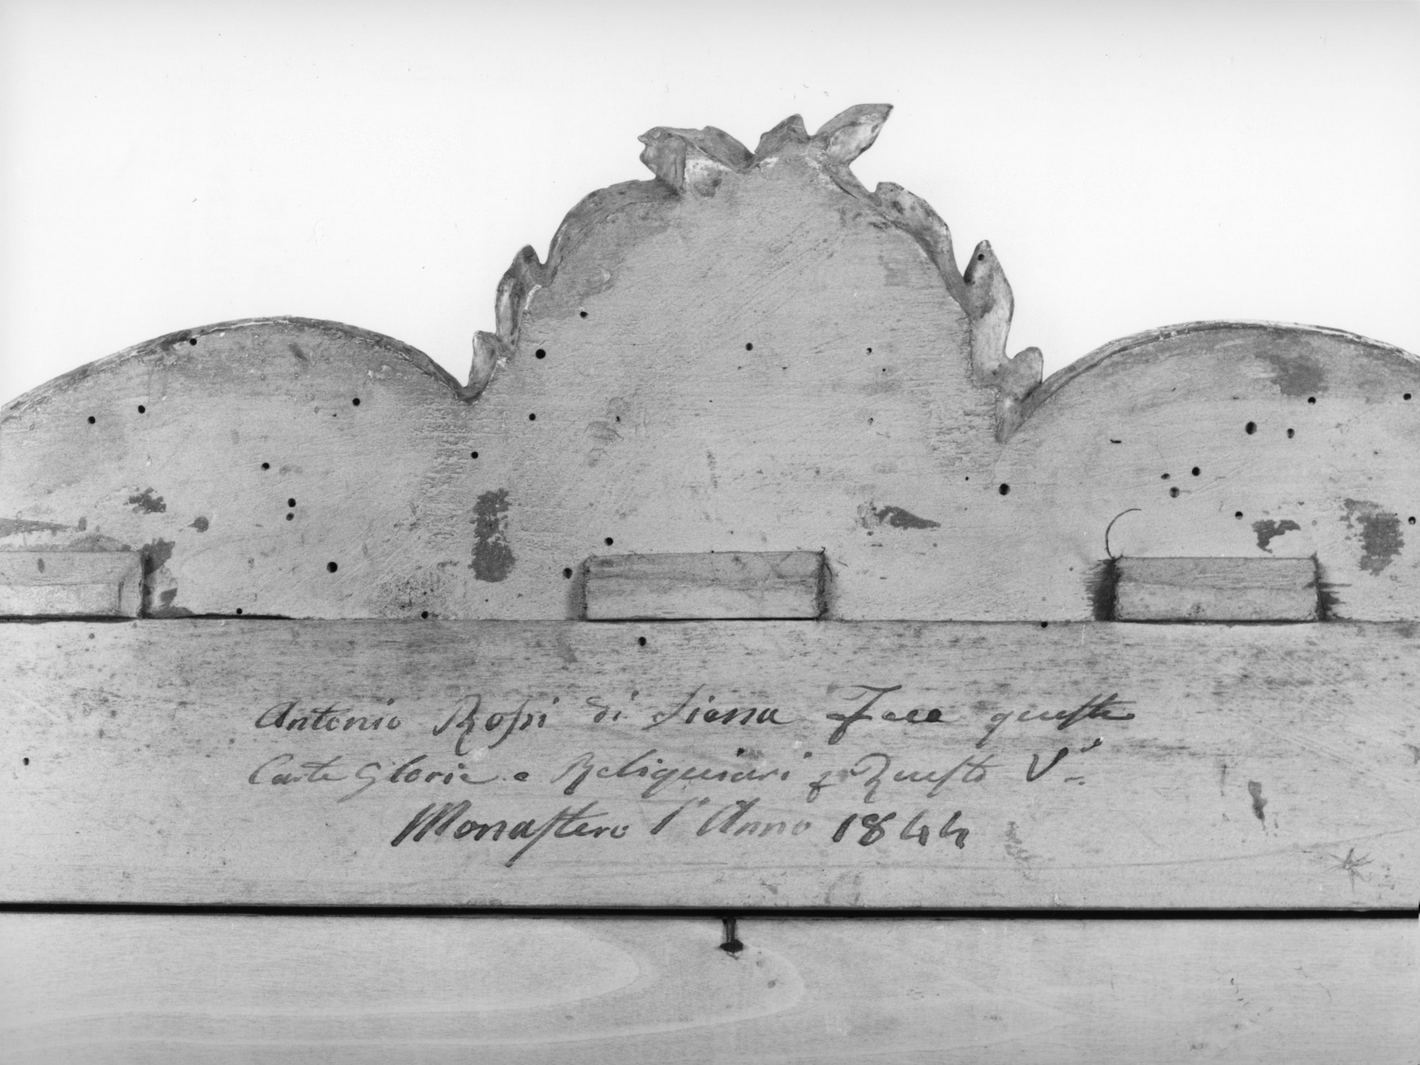 Antonio Rossi di Siena Fece queste
Carte Glorie e Reliquiari p Questo V.
Monastero l'Anno 1844